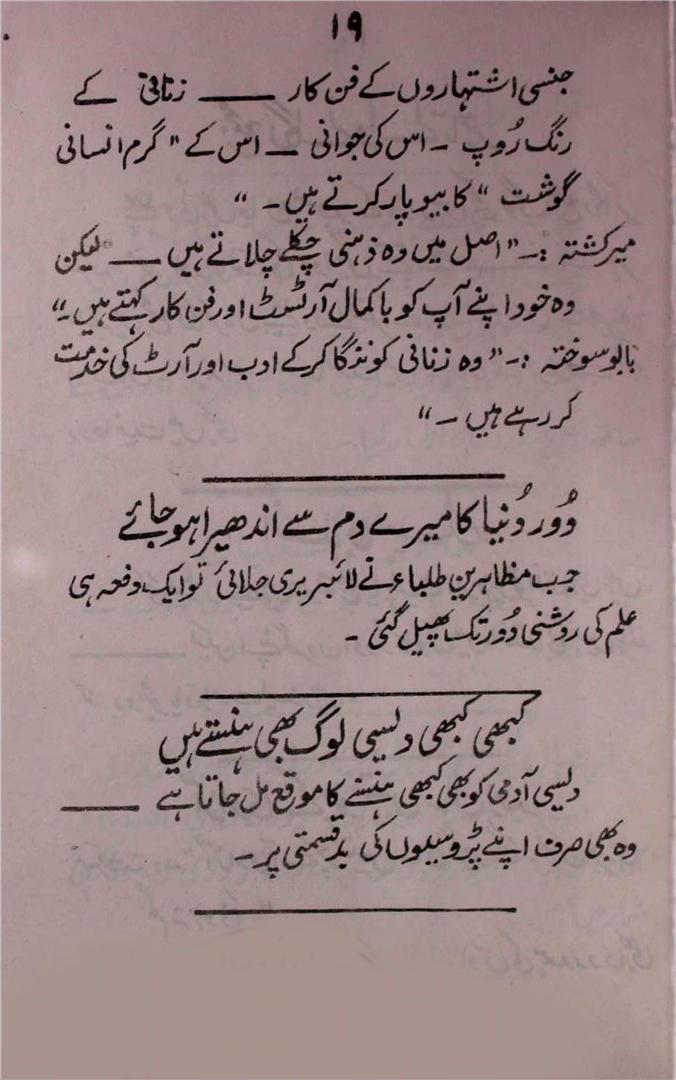 ۱۹
جنسی اشتہاروں کے فن کار ــــــ زنانی کے
رنگ رُوپ ۔ اس کی جوانی ــ اس کے " گرم انسانی
گوشت " کا بیوپار کرتے ہیں ۔ "
میر کشتہ :۔ " اصل میں وہ ذہنی چکلے چلاتے ہیں ــــ لیکن
وہ خود اپنے آپ کو با کمال آرٹسٹ اور فن کار کہتے ہیں ۔"
بابو سوختہ :۔ " وہ زنانی کو ننگا کر کے ادب اور آرٹ کی خدمت
کر رہے ہیں ۔ "
دُور دُنیا کا میرے دم سے اندھیرا ہو جائے
جب مظاہرین طلباء نے لائبریری جلائی تو ایک دفعہ ہی
علم کی روشنی دُور تک پھیل گئی ۔
کبھی کبھی دیسی لوگ بھی ہنستے ہیں
دیسی آدمی کو بھی کبھی ہنسنے کا موقع مل جاتا ہے ــــــ
وہ بھی صرف اپنے پڑوسیوں کی بدقسمتی پر ۔